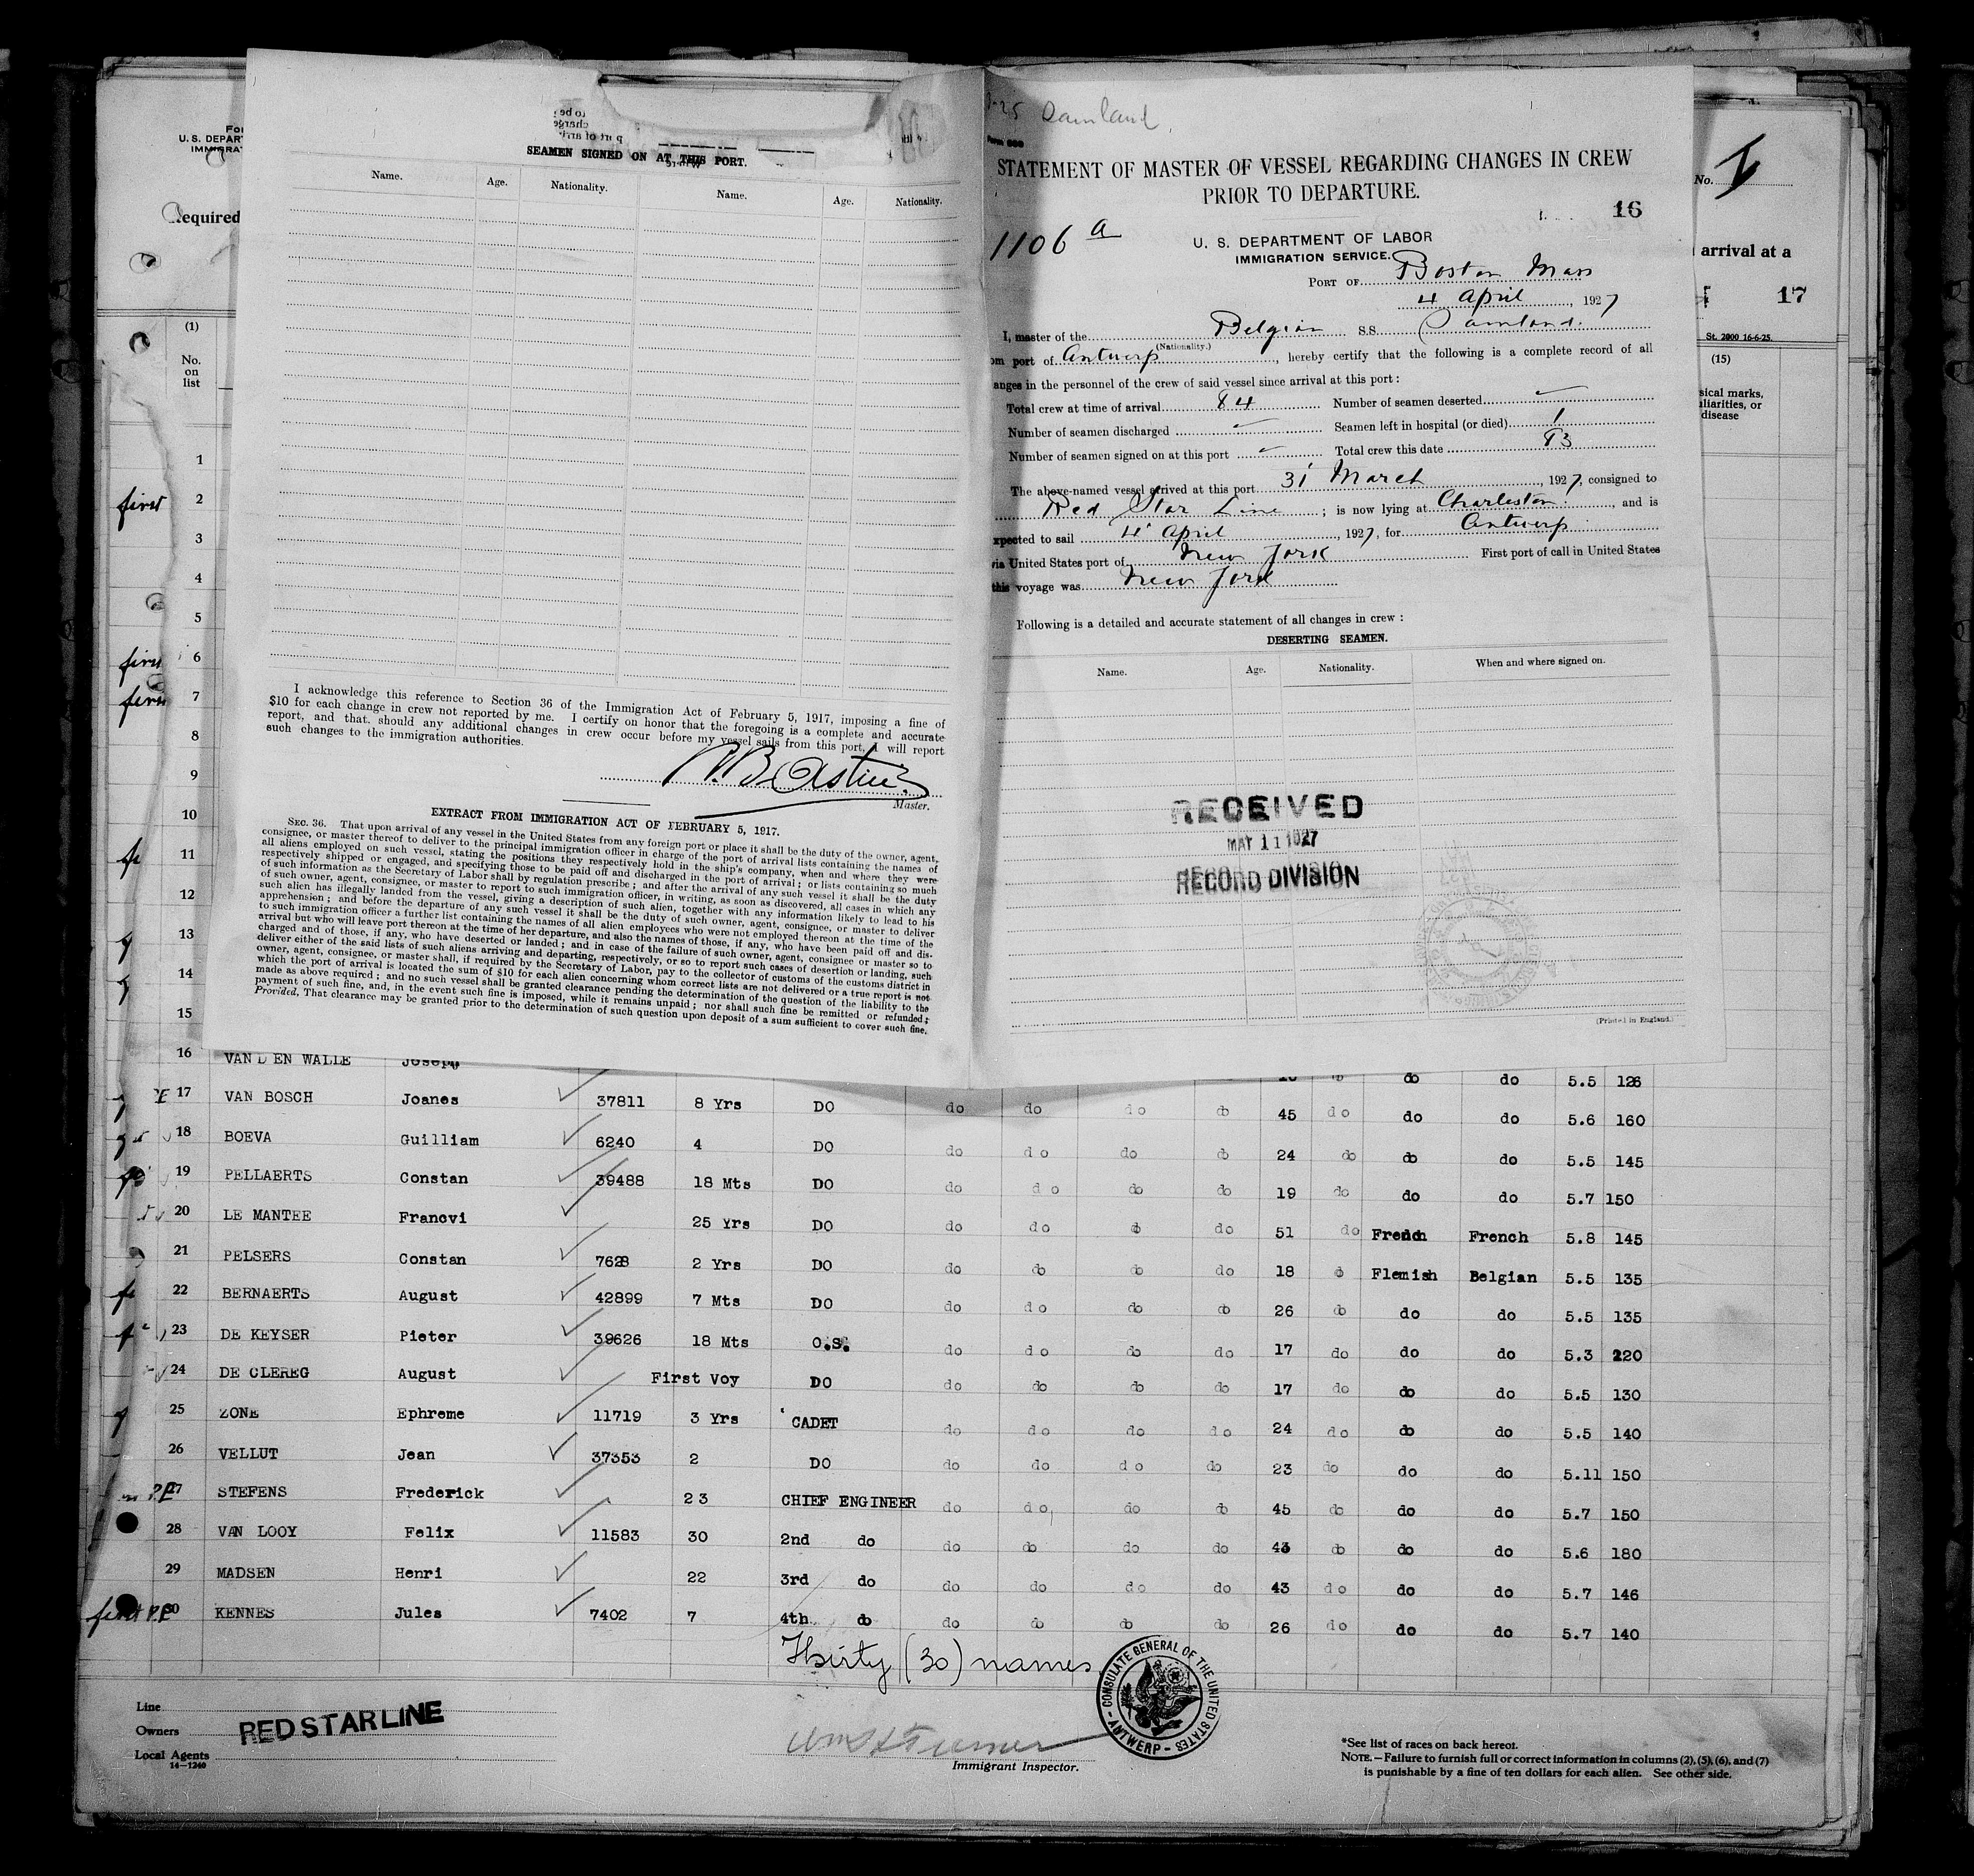 SEAMEN SIGNED ON AT THIS PORT.
Name. Age. Nationality. Name. Age. Nationality.
I acknowledge this reference to Section 36 of the Immigration Act of February 5, 1917, imposing a fine of
$10 for each change in crew not reported by me. I certify on honor that the foregoing is a complete and accurate
report, and that should any additional changes in crew occur before my vessel sails from this port, I will report
such changes to the immigration authorities.
Master.
EXTRACT FROM IMMIGRATION ACT OF FEBRUARY 5, 1917.
SEC. 36. That upon arrival of any vessel in the United States from any foreign port or place it shall be the duty of the owner, agent,
consignee, or master thereof to deliver to the principal immigration officer in charge of the port of arrival lists containing the names of
all aliens employed on such vessel, stating the positions they respectively hold in the ship's company, when and where they were
respectively shipped or engaged, and specifying those to be paid off and discharged in the port of arrival; or lists containing so much
of such information as the Secretary of Labor shall by regulation prescribe; and after the arrival of any such vessel it shall be the duty
of such owner, agent, consignee, or master to report to such immigration officer, in writing, as soon as discovered, all cases in which any
such alien has illegally landed from the vessel, giving a description of such alien, together with any information likely to lead to his
apprehension; and before the departure of any such vessel it shall be the duty of such owner, agent, consignee, or master to deliver
to such immigration officer a further list containing the names of all alien employees who were not employed thereon at the time of the
arrival but who will leave port thereon at the time of her departure, and also the names of those, if any, who have been paid off and dis-
charged and of those, if any, who have deserted or landed; and in case of the failure of such owner, agent, consignee or master so to
deliver either of the said lists of such aliens arriving and departing, respectively, or so to report such cases of desertion or landing, such
owner, agent, consignee, or master, shall, if required by the Secretary of Labor, pay to the collector of customs of the customs district in
which the port of arrival is located the sum of $10 for each alien concerning whom correct lists are not delivered or a true report is not
made as above required; and no such vessel shall be granted clearance pending the determination of the question of the liability to the
payment of such fine, and, in the event such fine is imposed, while it remains unpaid; nor shall such fine be remitted or refunded;
Provided, That clearance may be granted prior to the determination of such question upon deposit of a sum sufficient to cover such fine.
STATEMENT OF MASTER OF VESSEL REGARDING CHANGES IN CREW
PRIOR TO DEPARTURE.
16
1106 a
U. S. DEPARTMENT OF LABOR
IMMIGRATION SERVICE.
PORT OF Boston Mass
4 April, 1927
I, master of the Belgian S.S.
(Nationality.)
om port of Antwerp, hereby certify that the following is a complete record of all
anges in the personnel of the crew of said vessel since arrival at this port:
Total crew at time of arrival 84 Number of seamen deserted
Number of seamen discharged Seamen left in hospital (or died) 1
Number of seamen signed on at this port Total crew this date 83
The above-named vessel arrived at this port 31 March, 1927, consigned to
Red Star Line; is now lying at Charleston, and is
xpected to sail 4 April, 1927, for Antwerp
via United States port of New York First port of call in United States
this voyage was New York
Following is a detailed and accurate statement of all changes in crew:
DESERTING SEAMEN.
Name. Age. Nationality. When and where signed on.
RECEIVED
MAY 11 1927
RECORD DIVISION
(Printed in England.)
U. S. DEPART
IMMIGRA
equired
No.
arrival at a
17
St. 2000 16-6-25.
(1) (15)
No.
on
list
sical marks,
uliarities, or
disease
1
first 2
3
4
5
6
7
8
9
10
11
12
13
14
15
16 VAN DEN WALLE Joseph do do 5.5 126
17 VAN BOSCH Joanes 37811 8 Yrs DO do do do do 45 do do do 5.6 160
18 BOEVA Guilliam 6240 4 DO do do do do 24 do do do 5.5 145
19 PELLAERTS Constan 39488 18 Mts DO do do do do 19 do do do 5.7 150
20 LE MANTEE Francvi 25 Yrs DO do do do do 51 do French French 5.8 145
21 PELSERS Constan 7628 2 Yrs DO do do do do 18 do Flemish Belgian 5.5 135
22 BERNAERTS August 42899 7 Mts DO do do do do 26 do do do 5.5 135
23 DE KEYSER Pieter 39626 18 Mts O.S. do do do do 17 do do do 5.3 220
24 DE CLEREG August First Voy DO do do do do 17 do do do 5.5 130
25 ZONE Ephreme 11719 3 Yrs CADET do do do do 24 do do do 5.5 140
26 VELLUT Jean 37353 2 DO do do do do 23 do do do 5.11 150
27 STEFENS Frederick 23 CHIEF ENGINEER do do do do 45 do do do 5.7 150
28 VAN LOOY Felix 11583 30 2nd do do do do do 43 do do do 5.6 180
29 MADSEN Henri 22 3rd do do do do do 43 do do do 5.7 146
30 KENNES Jules 7402 7 4th do do do do do 26 do do do 5.7 140
Thirty (30) names
CONSULATE GENERAL OF THE UNITED STATES - ANTWERP -
Line
Owners
Local Agents
14-1240
RED STAR LINE
Immigrant Inspector.
*See list of races on back hereof.
NOTE.—Failure to furnish full or correct information in columns (2), (5), (6), and (7)
is punishable by a fine of ten dollars for each alien. See other side.